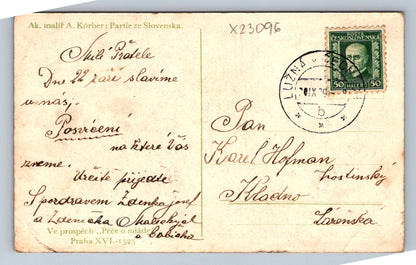 Ak. malíř A. Körber: Partie ze Slovenska.
X23096
Milí Přátelé
Dne 22 září slavíme
u nás,
Posvícení
na které Vás
zveme.
Určitě přijeďte
S pozdravem Zdenka Josef
a Zdenička
a babička
Ve prospěch „Péče o mládež“
Praha XVI.-1525
ČESKOSLOVENSKO
50 50
LUŽNÁ
b
Pan
Karel Hofman
hostinský
Kladno